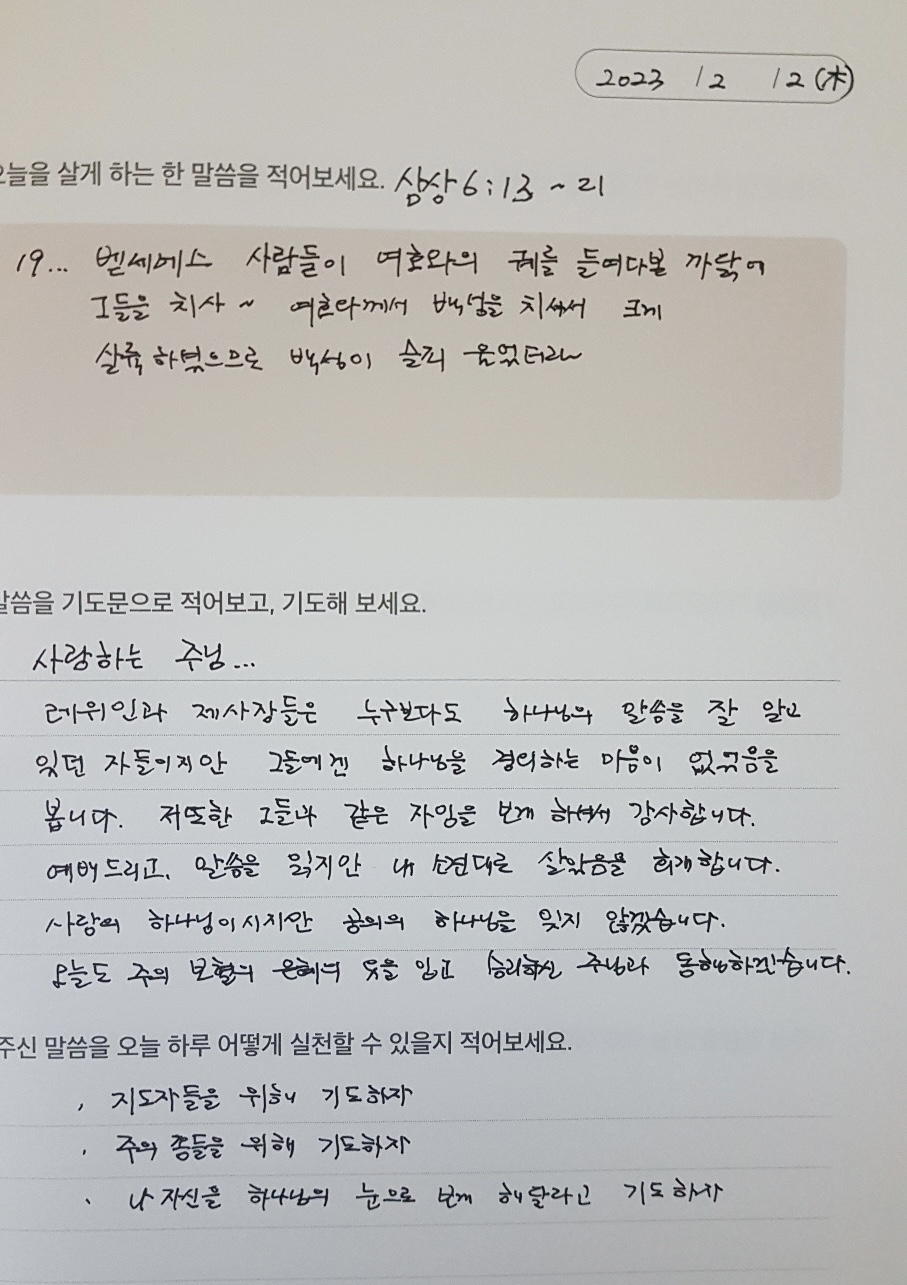 2023 12 12 (木)
오늘을 살게 하는 한 말씀을 적어보세요. 삼상 6:13 ~ 21
19... 벧세메스 사람들이 여호와의 궤를 들여다본 까닭에
그들을 치사 ~ 여호와께서 백성을 치셔서 크게
살륙 하셨으므로 백성이 슬피 울었더라~
말씀을 기도문으로 적어보고, 기도해 보세요.
사랑하는 주님...
레위인과 제사장들은 누구보다도 하나님의 말씀을 잘 알고
있던 자들이지만 그들에겐 하나님을 경외하는 마음이 없었음을
봅니다. 저또한 그들과 같은 자임을 보게 하셔서 감사합니다.
예배드리고, 말씀을 읽지만 내 소견대로 살았음을 회개합니다.
사랑의 하나님이시지만 공의의 하나님을 잊지 않겠습니다.
오늘도 주의 보혈의 은혜의 옷을 입고 승리하신 주님과 동행하겠습니다.
주신 말씀을 오늘 하루 어떻게 실천할 수 있을지 적어보세요.
· 지도자들을 위해 기도하자
· 주의 종들을 위해 기도하자
· 나 자신을 하나님의 눈으로 보게 해달라고 기도하자